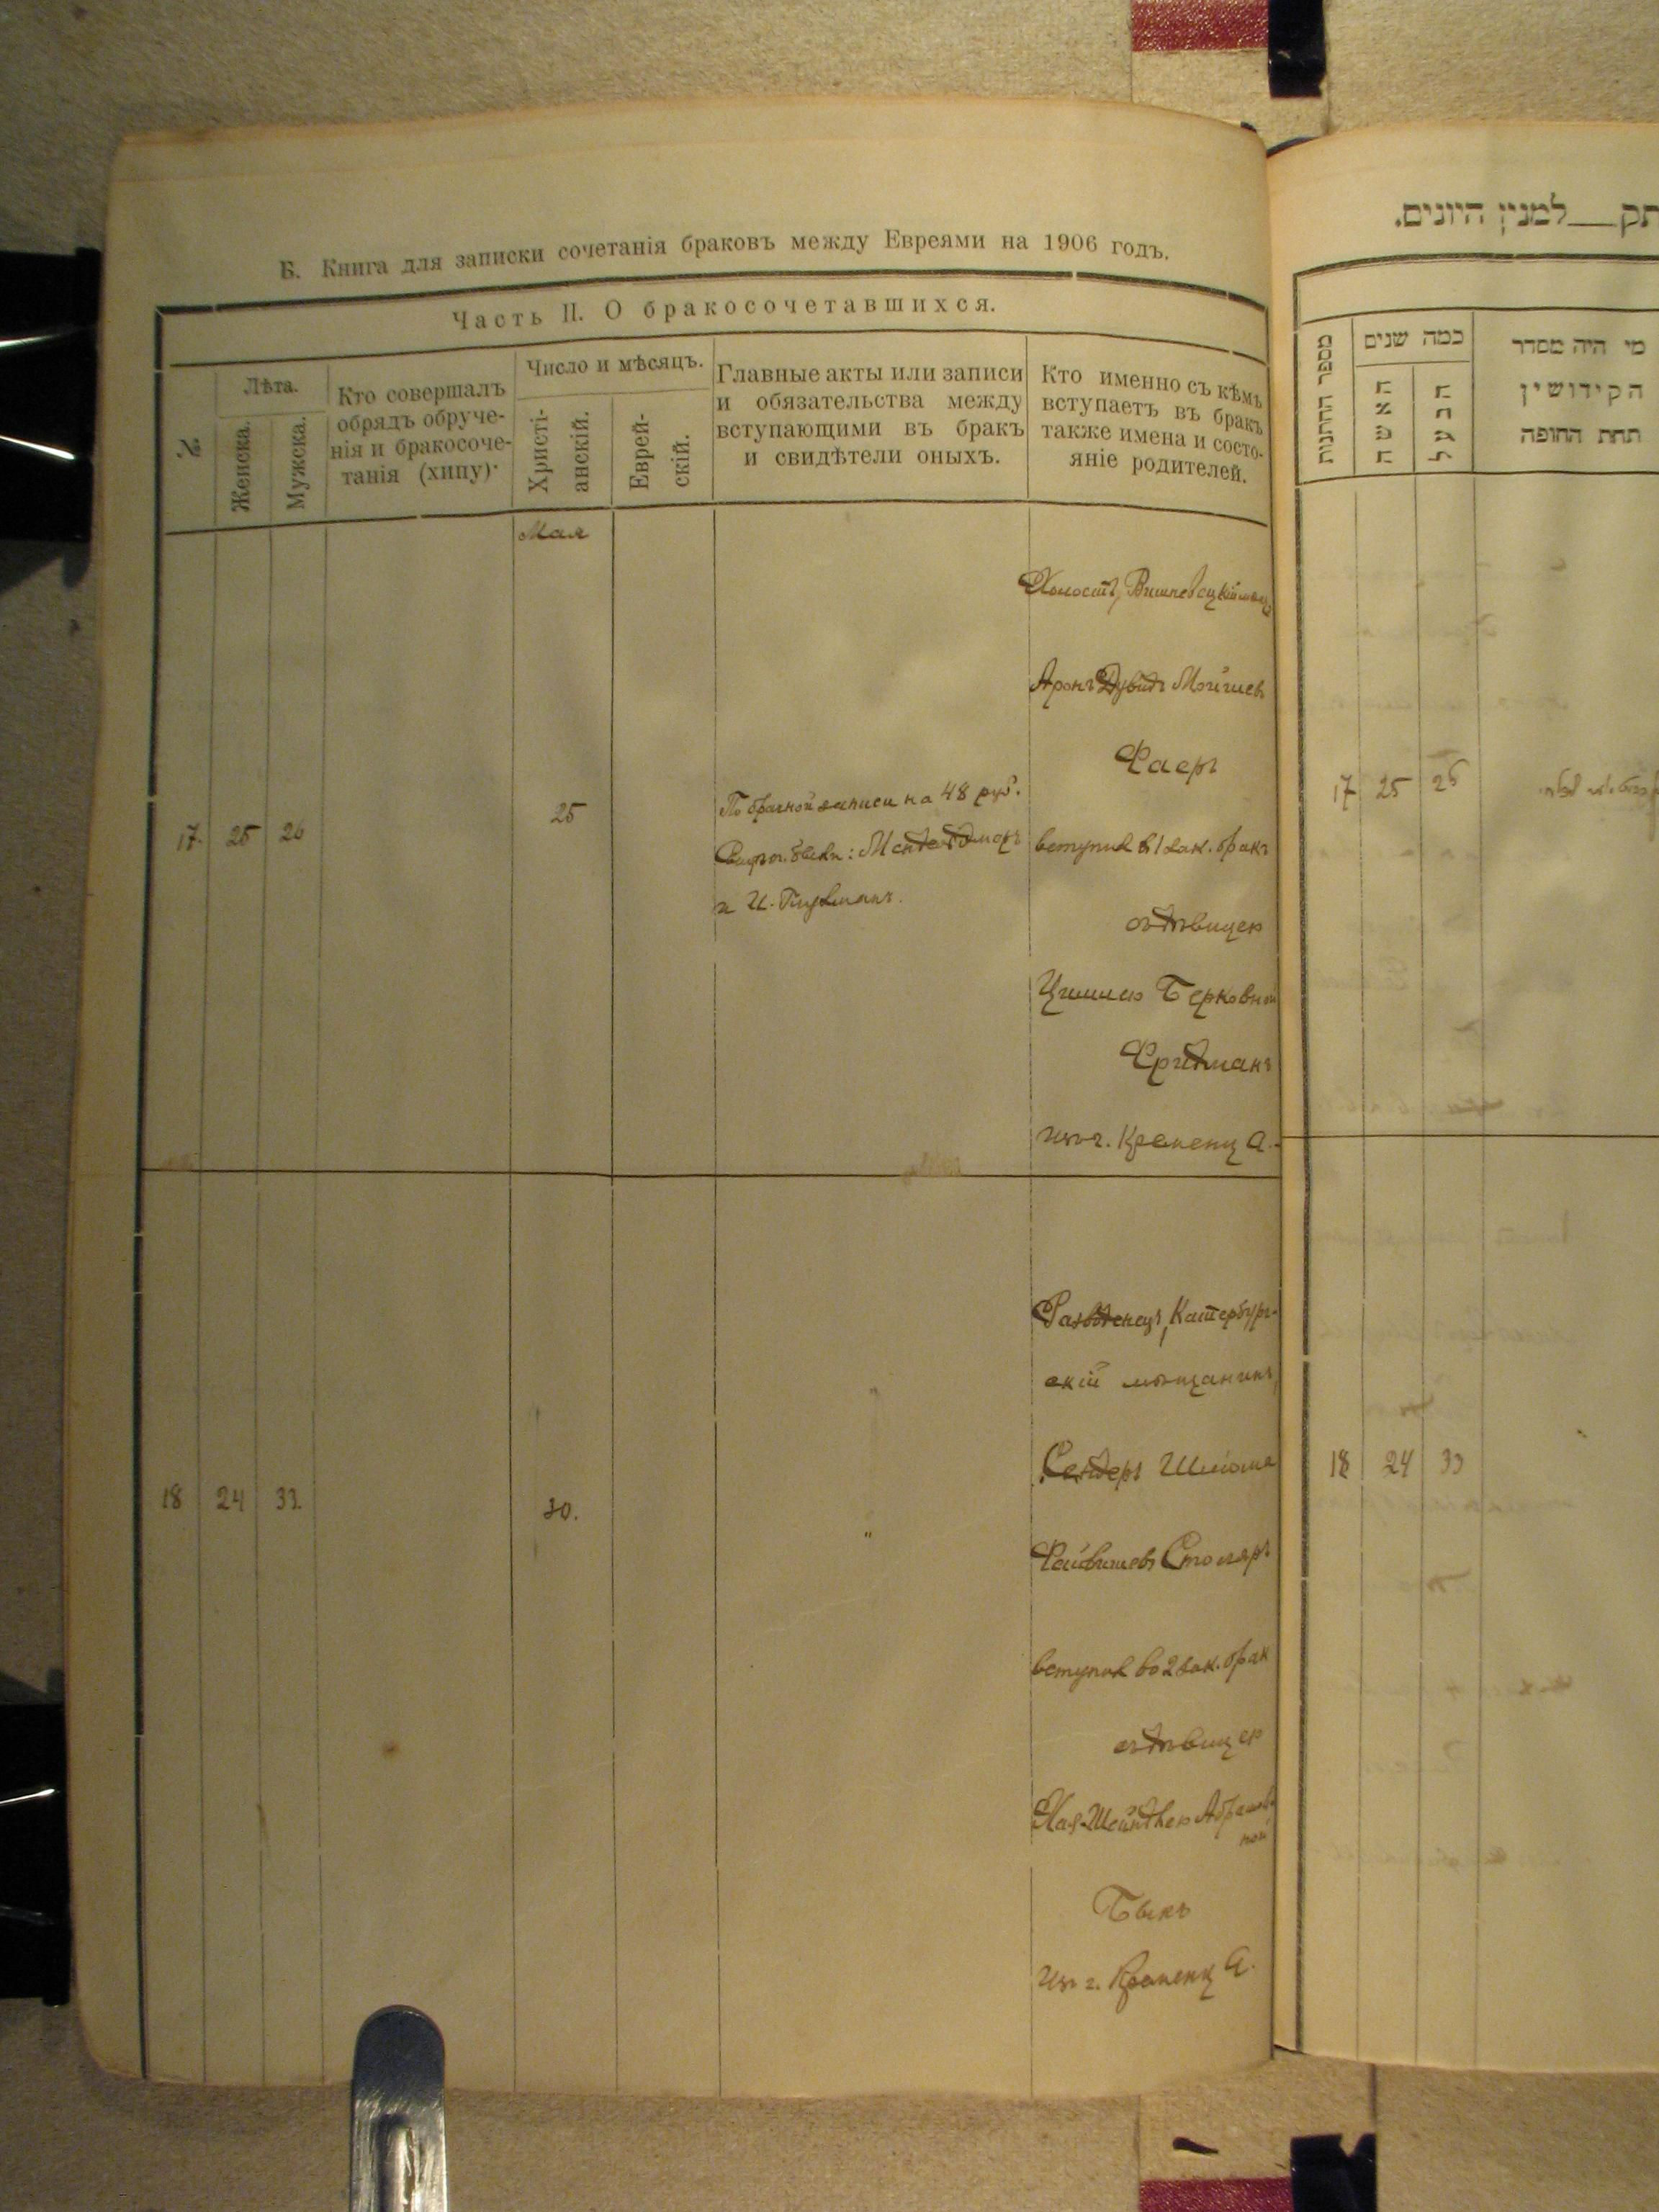 Б. Книга для записки сочетанія браковъ между Евреями на 1906 годъ.
Часть II. О бракосочетавшихся.
№
Лѣта.
Женска.
Мужска.
Кто совершалъ
обрядъ обруче-
нія и бракосоче-
танія (хипу).
Число и мѣсяцъ.
Христі-
анскій.
Еврей-
скій.
Главные акты или записи
и обязательства между
вступающими въ бракъ
и свидѣтели оныхъ.
Кто именно съ кѣмъ
вступаетъ въ бракъ
также имена и состо-
яніе родителей.
Мая
17. 25 26
25
По брачной записи на 48 руб.
и И.
Холостъ, Вишневецкій мѣщ
Аронъ Дувидъ Мошковъ
Фаеръ
вступил в 1 зак. бракъ
съ дѣвицею
Берковной
Фридманъ
изъ г. Кременца.
18 24 33
30.
"
Разведенецъ, Катербург-
скій мѣщанинъ,
Сендеръ Шлома
Файвишевъ Столяръ
вступил во 2 зак. брак
съ дѣвицею
Хая-Шейндлею Абрамов
ной
Быкъ
изъ г. Кременца.
תק___למנין היונים.
מספר החתונות
כמה שנים
האשה
הבעל
מי היה מסדר
הקידושין
תחת החופה
17 25 26
18 24 33